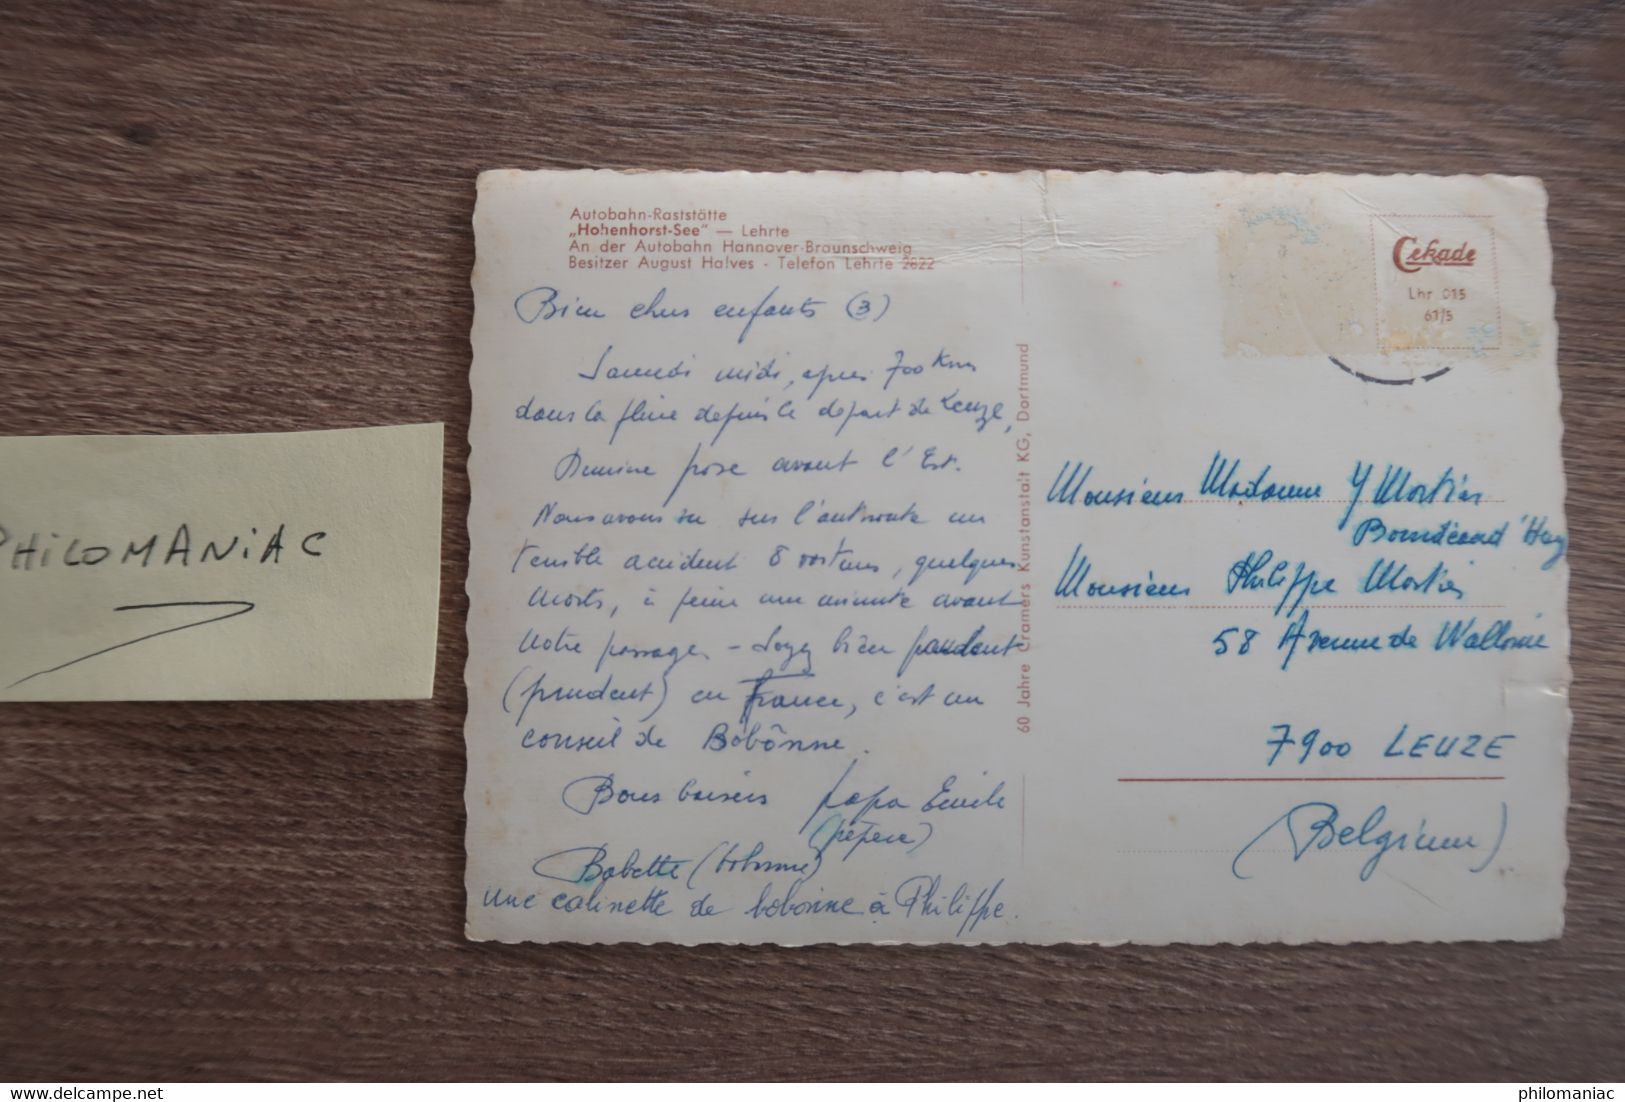 Autobahn-Raststätte
„Hohenhorst-See" — Lehrte
An der Autobahn Hannover-Braunschweig
Besitzer August Halves - Telefon Lehrte 2622
Bien chers enfants (3)
Samedi midi, après 700 Kms
dans la pluie depuis le départ de Leuze,
pose avant l'Est.
Nous avons vu sur l'autoroute un
terrible accident 8 voitures, quelques
morts, à peine une minute avant
notre passage - Soyez bien
(prudent) en France, c'est un
conseil de Bobonne.
Bons baisers papa Emile
(pépère)
Babette (bobonne)
une calinette de bobonne à Philippe.
60 Jahre Cramers Kunstanstalt KG, Dortmund
Cekade
Lhr 015
61/5
Monsieur Madame Y Mortier
Monsieur Philippe Mortier
58 Avenue de Wallonie
7900 LEUZE
(Belgique)
PHILOMANIAC
http://www.delcampe.net
philomaniac